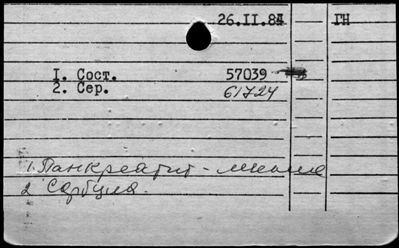 26.II.84 ГН
I. Сост. 57039
2. Сер. 61724
1. Панкреатит -
2. Сорбуля.